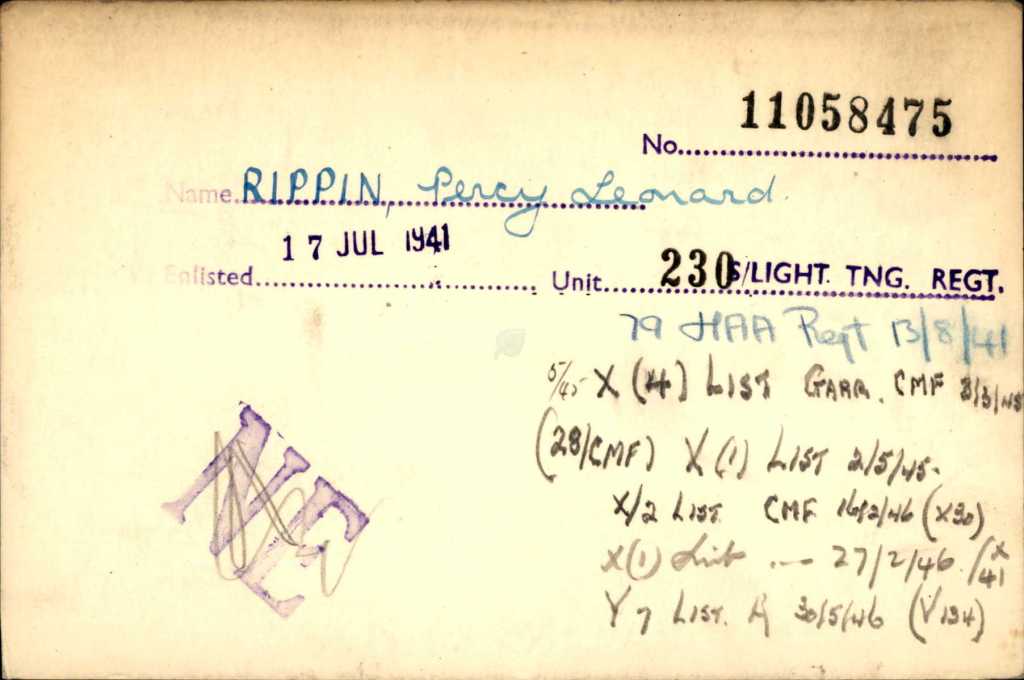 11058475
No.
Name. RIPPIN, Percy Leonard.
17 JUL 1941
Enlisted. Unit. 230 S/LIGHT. TNG. REGT.
79 HAA Regt 13/8/41
5/45 X (4) LIST GARR. CMF 3/3/45
(28/CMF) X (1) LIST 2/5/45.
X/2 LIST CMF 16/2/46 (X30)
X(1) List 27/2/46. (X 41
Y 7 LIST. 30/5/46 (Y134)
NE